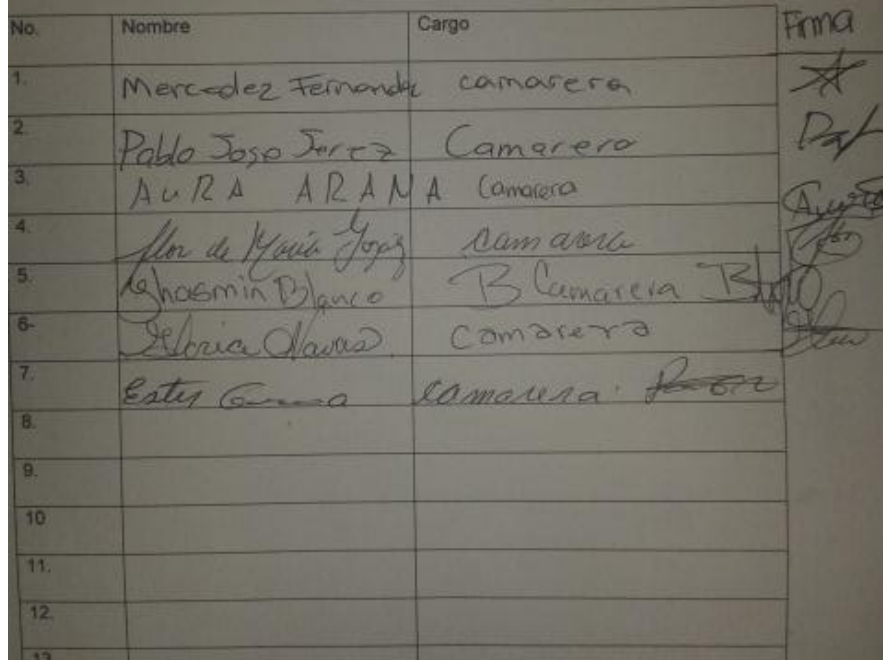 No. Nombre Cargo Firma
1. Mercedez Fernandez camarera
2. Pablo Jose Jerez Camarero
3. AURA ARANA Camarera
4. flor de Maria camarera
5. Blanco B Camarera
6- Gloria Navas. Camarera
7. Ester camarera.
8.
9.
10
11.
12.
13